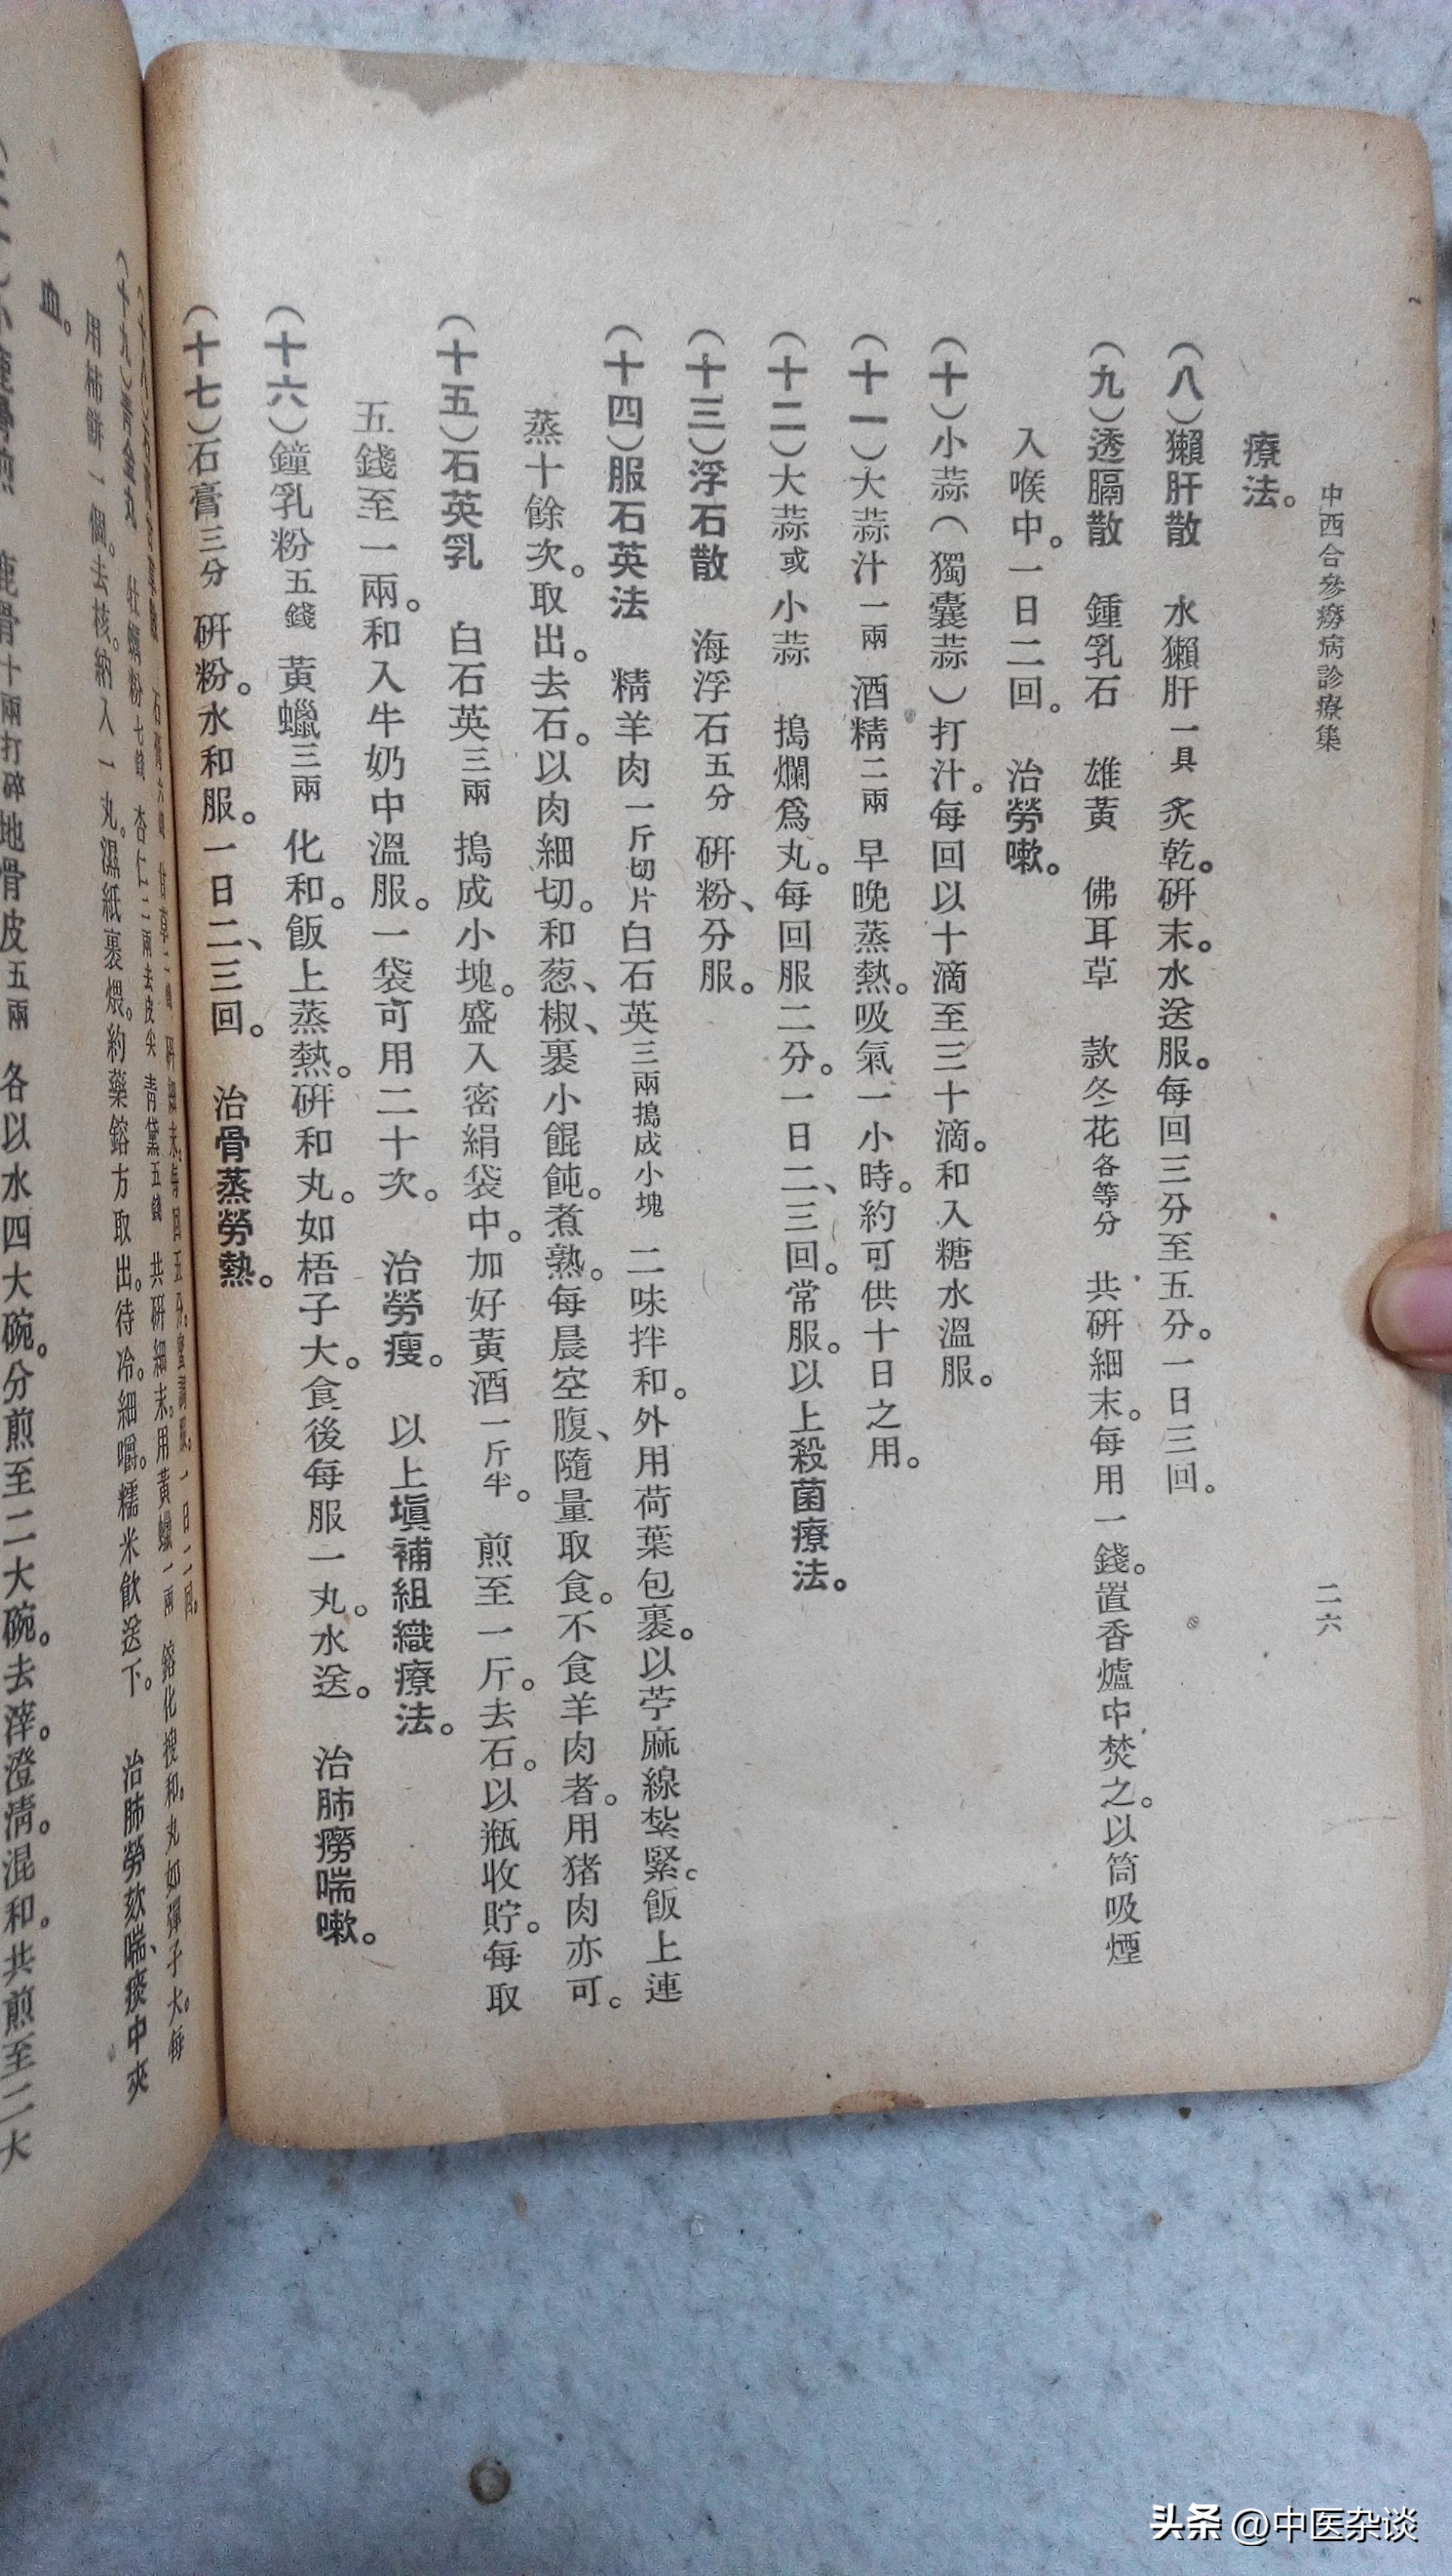 中西合參癆病診療集
二六
療法。
（八）獺肝散　水獺肝一具　炙乾。研末。水送服。每回三分至五分。一日三回。
（九）透膈散　鍾乳石　雄黃　佛耳草　款冬花各等分　共研細末。每用一錢。置香爐中焚之。以筒吸煙
入喉中。一日二回。　治勞嗽。
（十）小蒜（獨囊蒜）打汁。每回以十滴至三十滴。和入糖水溫服。
（十一）大蒜汁一兩　酒精二兩　早晚蒸熱。吸氣一小時。約可供十日之用。
（十二）大蒜或小蒜　搗爛爲丸。每回服二分。一日二、三回。常服。以上殺菌療法。
（十三）浮石散　海浮石五分　研粉、分服。
（十四）服石英法　精羊肉一斤切片　白石英三兩搗成小塊　二味拌和。外用荷葉包裹。以苧麻線紮緊。飯上連
蒸十餘次。取出。去石。以肉細切。和葱、椒、裹小餛飩。煮熟。每晨空腹、隨量取食。不食羊肉者。用猪肉亦可。
（十五）石英乳　白石英三兩　搗成小塊。盛入密絹袋中。加好黃酒一斤半。　煎至一斤。去石。以瓶收貯。每取
五錢至一兩。和入牛奶中溫服。一袋可用二十次。　治勞瘦。　以上塡補組織療法。
（十六）鐘乳粉五錢　黃蠟三兩　化和。飯上蒸熱。研和丸。如梧子大。食後每服一丸。水送。　治肺癆喘嗽。
（十七）石膏三分　研粉。水和服。一日二、三回。　治骨蒸勞熱。
石膏六錢　甘草二錢　研細末。每回五分。蜜調服。一日二回。
（十九）青金丸　牡蠣粉七錢　杏仁二兩去皮尖　青黛五錢　共研細末。用黃蠟一兩　鎔化搜和。丸如彈子大。每
用柿餅一個。去核。納入一丸。濕紙裹煨。約藥鎔方取出。待冷。細嚼。糯米飲送下。　治肺勞欬喘、痰中夾
血。
鹿骨煎　鹿骨十兩打碎地骨皮五兩　各以水四大碗。分煎至二大碗。去滓。澄清。混和。共煎至二大
头条 @中医杂谈